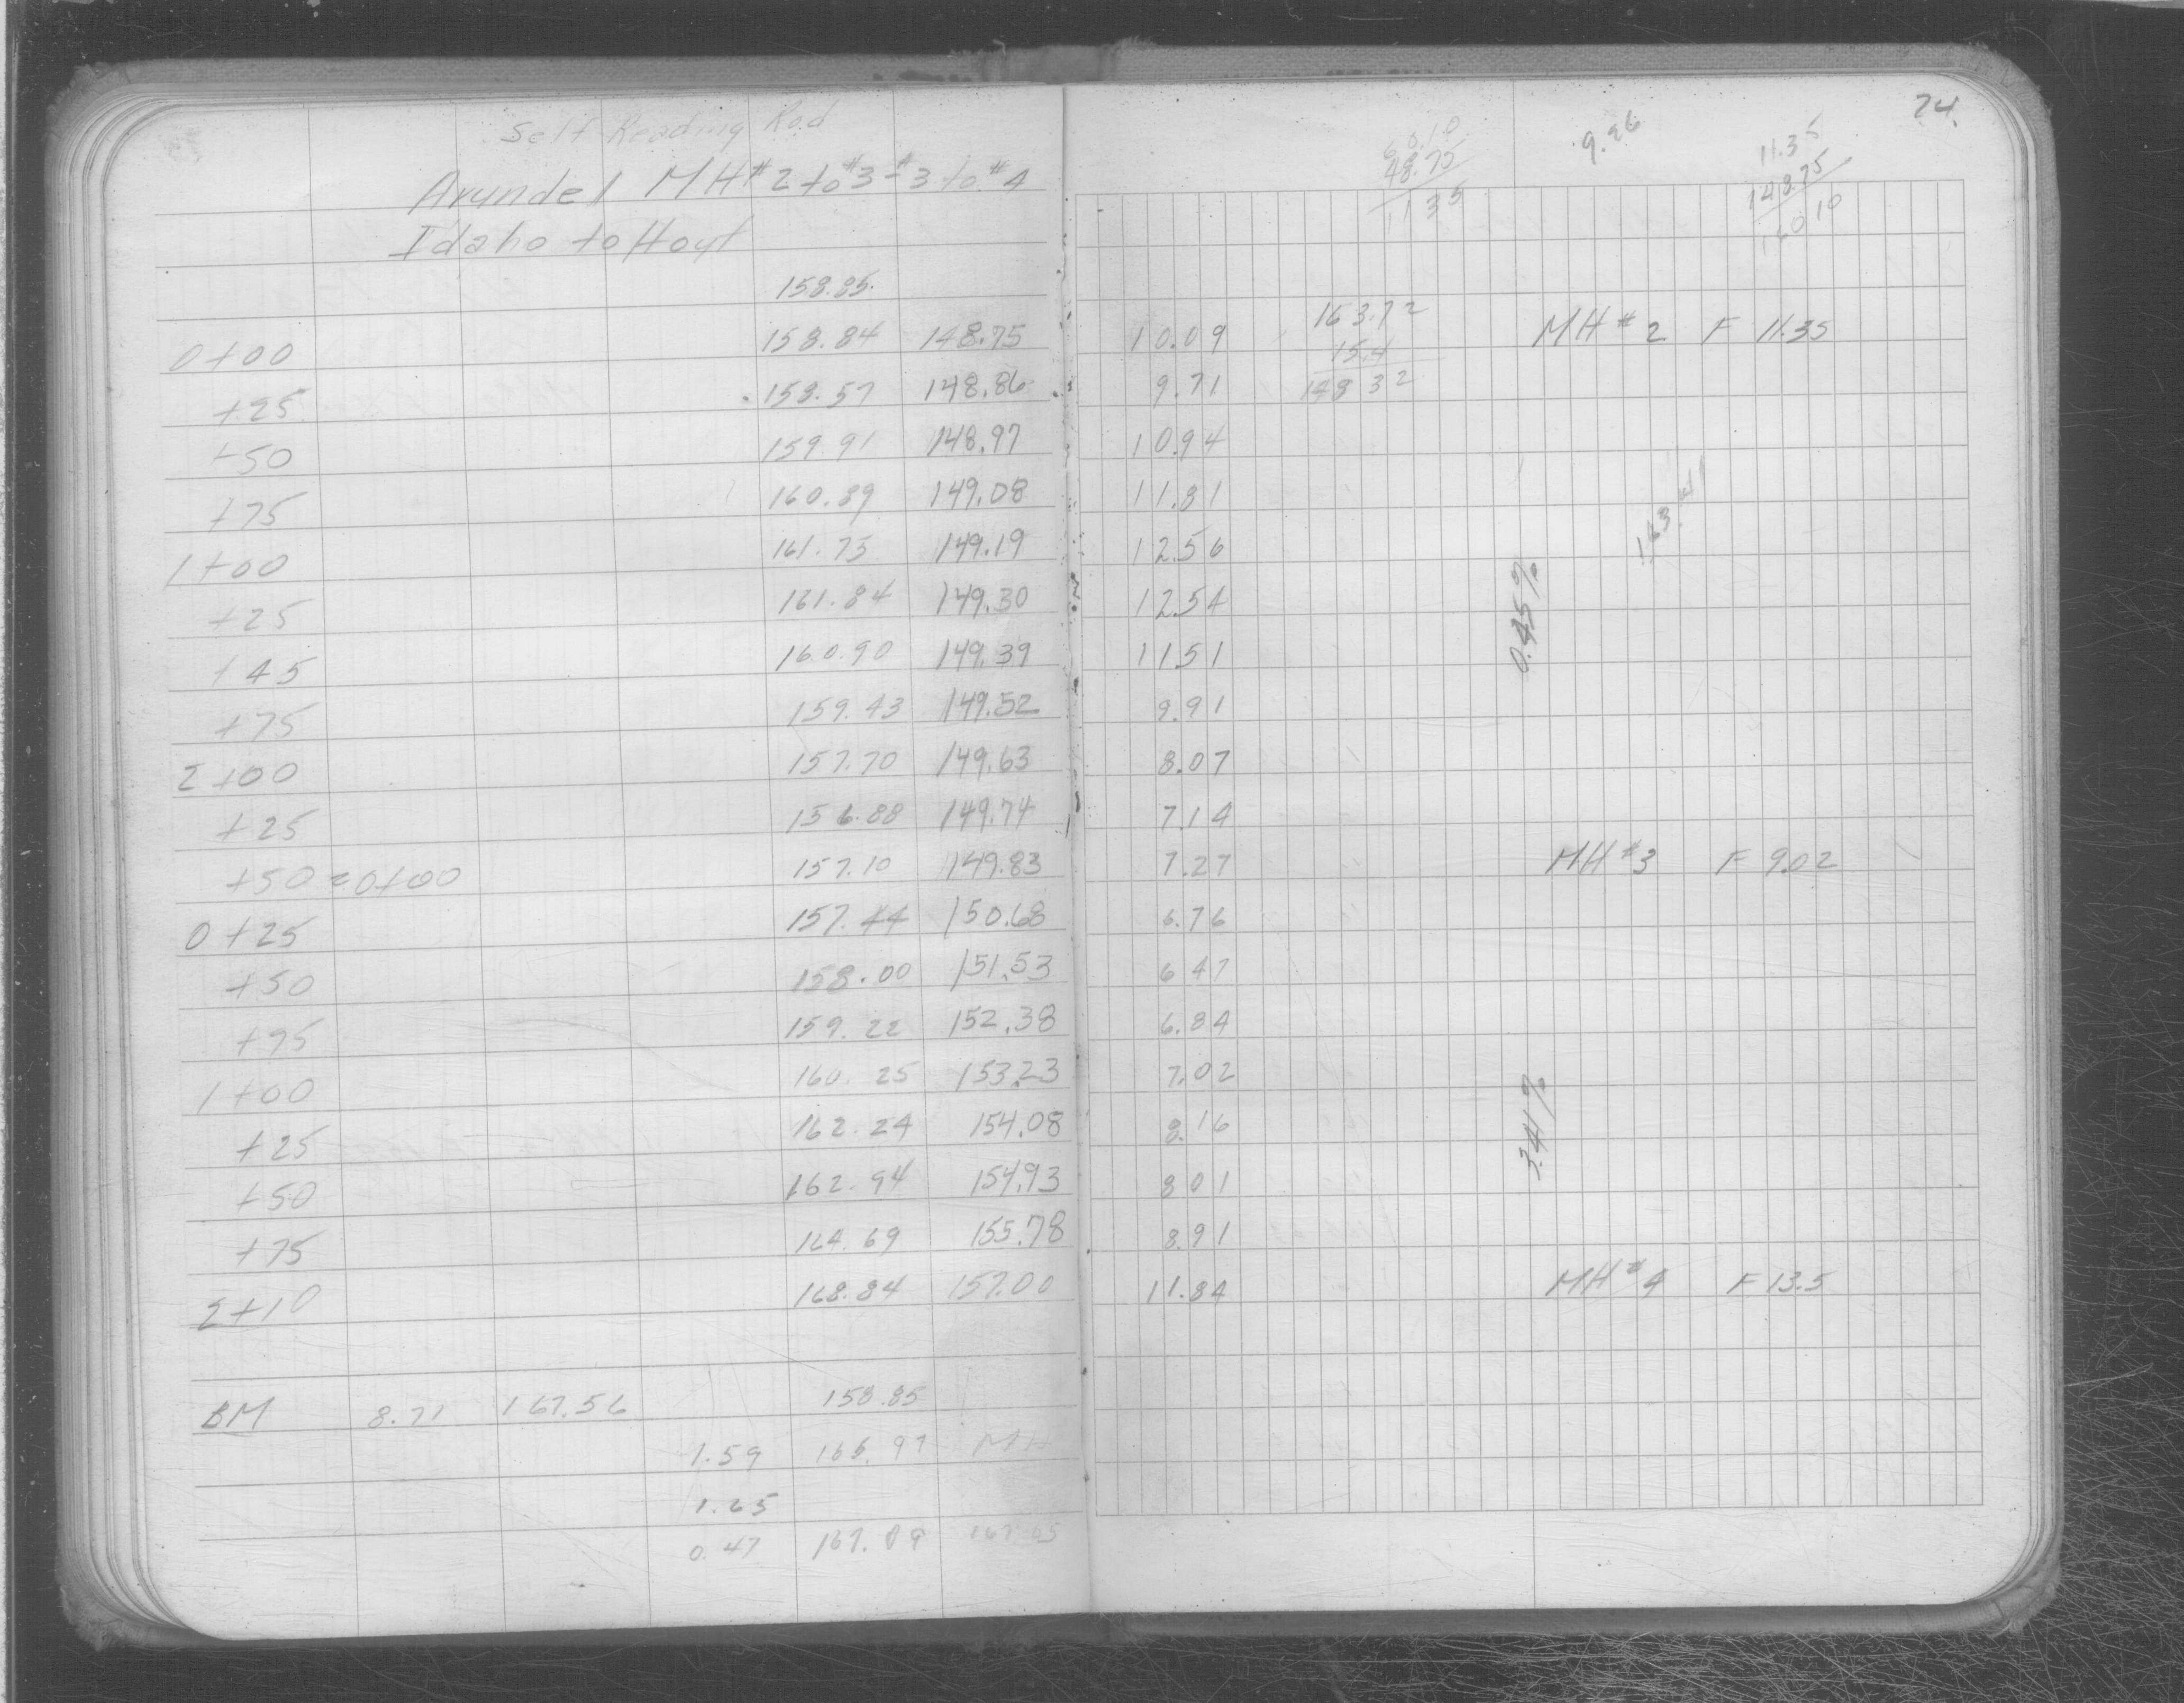 24.
Self Reading Rod
Arundel MH#2 to #3 - #3 to #4
Idaho to Hoyt
60.10
48.75
11 35
9.26
11.35
148.75
160 10
158.85
0+00 158.84 148.75 10.09 163.72 MH #2 F 11.35
15.4
+25 158.57 148.86 9.71 148 32
+50 159.91 148.97 10.94
+75 160.89 149.08 11.81 163.41
1+00 161.75 149.19 12.56
+25 161.84 149.30 12.54 0.45%
+45 160.90 149.39 11 51
+75 159.43 149.52 9.91
2+00 157.70 149.63 8.07
+25 156.88 149.74 7.14
+50=0+00 157.10 149.83 7.27 MH #3 F 9.02
0+25 157.44 150.68 6.76
+50 158.00 151.53 6 47
+75 159.22 152.38 6.84
1+00 160.25 153.23 7.02
+25 162.24 154.08 8.16 3.41%
+50 162.94 154.93 8 01
+75 164.69 155.78 8.91
2+10 168.84 157.00 11.84 MH #4 F 13.5
BM 8.71 167.56 158.85
1.59 165.97 MH
1.65
0.47 167.09